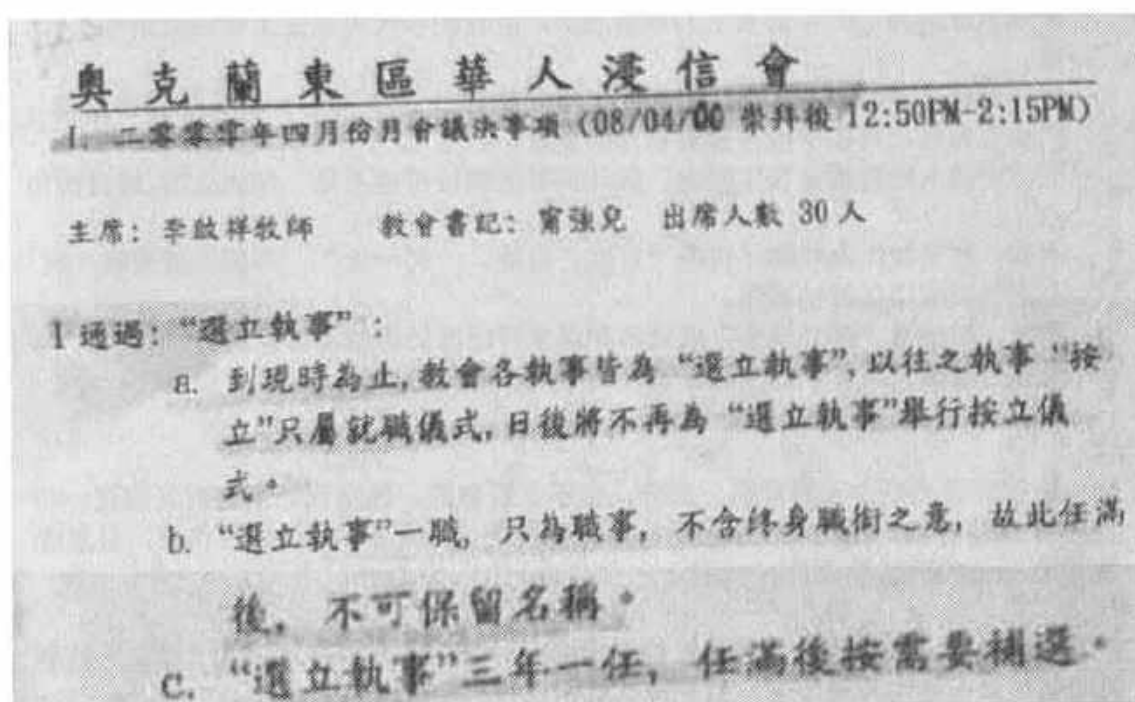 奧克蘭東區華人浸信會
1. 二零零零年四月份月會議決事項 (08/04/00 崇拜後 12:50PM-2:15PM)
主席: 李啟祥牧師 教會書記: 甯強兒 出席人數 30 人
1 通過: “選立執事”:
a. 到現時為止, 教會各執事皆為 “選立執事”, 以往之執事 “按
立”只屬就職儀式, 日後將不再為 “選立執事”舉行按立儀
式。
b. “選立執事”一職, 只為職事, 不含終身職銜之意, 故此任滿
後, 不可保留名稱。
c. “選立執事”三年一任, 任滿後按需要補選。